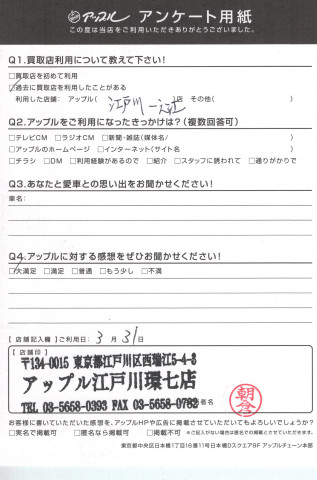 アップル アンケート用紙
この度は当店をご利用いただきありがとうございました。
Q1.買取店利用について教えて下さい!
□買取を初めて利用
□過去に買取店を利用したことがある
利用した店舗: アップル( 江戸川 )店 その他( )
Q2.アップルをご利用になったきっかけは?(複数回答可)
□テレビCM □ラジオCM □新聞・雑誌(媒体名/ )
□アップルのホームページ □インターネット(サイト名 )
□チラシ □DM □利用経験があるので □紹介 □スタッフに誘われて □通りがかりで
Q3.あなたと愛車との思い出をお聞かせください!
車名:
Q4.アップルに対する感想をぜひお聞かせください!
□大満足 □満足 □普通 □もう少し □不満
【店舗記入欄】ご利用日: 3月31日
【店舗印】
〒134-0015 東京都江戸川区西瑞江5-4-3
アップル江戸川環七店
TEL 03-5658-0393 FAX 03-5658-0782 者名
朝倉
お客様に書いていただいた感想を、アップルHPや広告に掲載させていただいてもよろしいでしょうか?
□実名で掲載可 □匿名なら掲載可 □掲載不可 ※ご記入がない場合は匿名での掲載とさせていただきます。
東京都中央区日本橋1丁目16番11号日本橋Dスクエア9F アップルチェーン本部